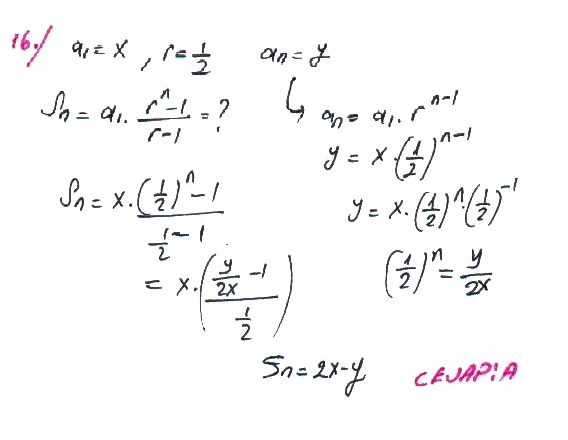 16./ a₁ = x , r = 1/2 aₙ = y
Sₙ = a₁ . (rⁿ - 1)/(r - 1) = ? ↳ aₙ = a₁ . rⁿ⁻¹
y = x . (1/2)ⁿ⁻¹
Sₙ = x . ((1/2)ⁿ - 1)/(1/2 - 1) y = x . (1/2)ⁿ . (1/2)⁻¹
= x . ((y/2x - 1)/(1/2)) (1/2)ⁿ = y/2x
Sₙ = 2x - y CEVAP: A